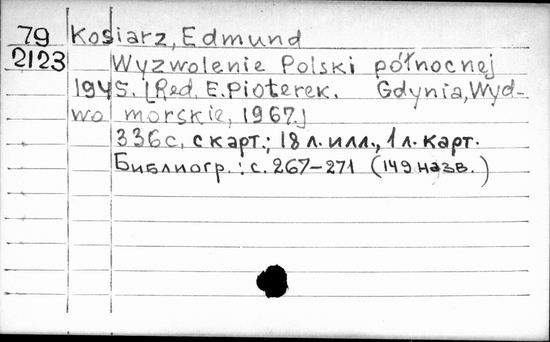 79 Kosiarz, Edmund
2123 Wyzwolenie Polski północnej
1945. [Red. E. Pioterek. Gdynia, Wyd-
wo morskie, 1967.]
336с, с карт.; 18 л. илл., 1 л. карт.
Библиогр.: с. 267-271 (149 назв.)